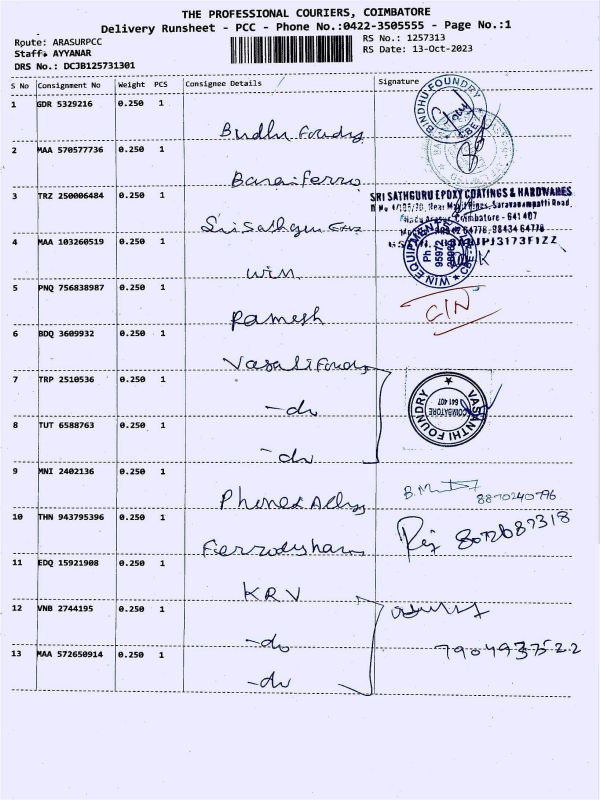 THE PROFESSIONAL COURIERS, COIMBATORE
Delivery Runsheet - PCC - Phone No.:0422-3505555 - Page No.:1
Route: ARASURPCC
RS No.: 1257313
Staff: AYYANAR
RS Date: 13-Oct-2023
DRS No.: DCJB125731301
S No Consignment No Weight PCS Consignee Details Signature
1 GDR 5329216 0.250 1
BINDHU FOUNDRY
CBE
Bindhu Foundry
2 MAA 570577736 0.250 1
Barai Ferro
3 TRZ 250006484 0.250 1
SRI SATHGURU EPOXY COATINGS & HARDWARES
Saravanampatti Road,
Coimbatore - 641 407
98434 64778
Sri Sathguru
4 MAA 103260519 0.250 1
WIN EQUIPMENT
Ph
win
5 PNQ 756838987 0.250 1
Ramesh
6 BDQ 3609932 0.250 1
7 TRP 2510536 0.250 1
VASANTHI FOUNDRY
COIMBATORE
641 407
-do
8 TUT 6588763 0.250 1
-do
9 MNI 2402136 0.250 1
8870240796
10 THN 943795396 0.250 1
8072687318
11 EDQ 15921908 0.250 1
KRV
12 VNB 2744195 0.250 1
-do
13 MAA 572650914 0.250 1
7904937522
-do